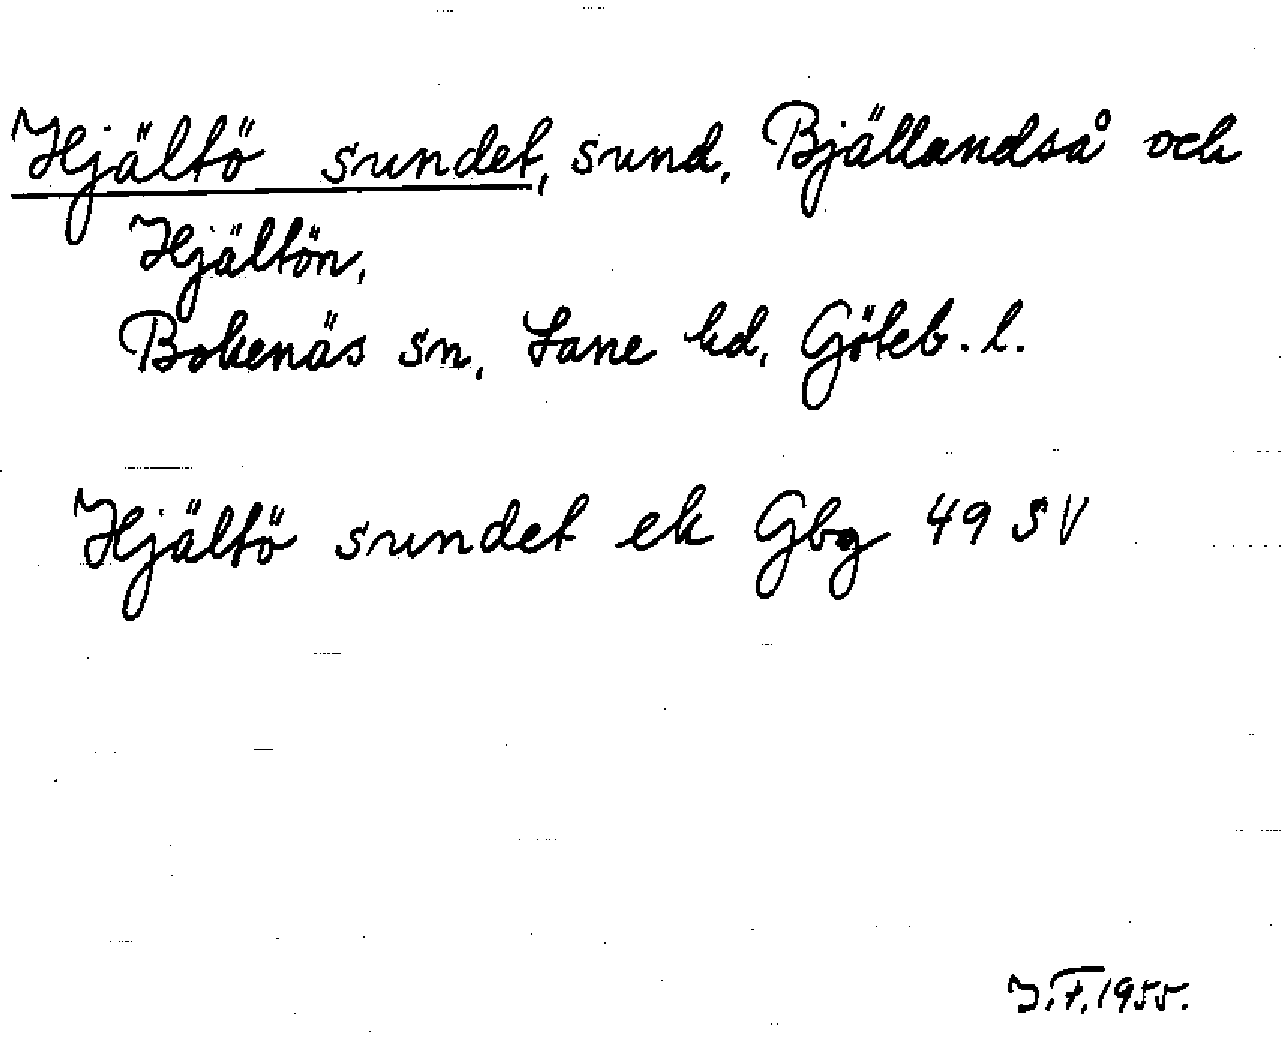 Hjältö sundet, sund, Bjällandså och
Hjältön,
Bokenäs sn, Lane hd, Göteb. l.
Hjältö sundet ek Gbg 49 SV
I.F. 1955.